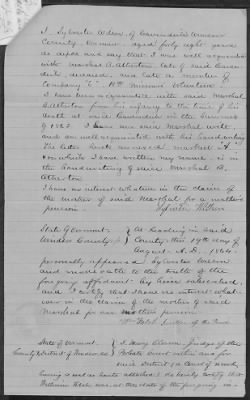 I, Sylvester Wilson, of Cavendish Windsor
County Vermont aged forty eight years
do depose and say that I was well acquainted
with Marshal B. Atherton late of said Caven
dish, deceased, and late a member of
Company "C" 10th Vermont Volunteers.
I have been acquainted with said Marshal
B. Atherton from his infancy to the time of his
death at said Cavendish in the Summer
of 1863. I knew said Marshal well,
and am well acquainted with his handwriting
The letter hereto annexed marked "A"
on which I have written my name is in
the handwriting of said Marshal B.
Atherton
I have no interest whatever in the claim of
the mother of said Marshal for a mother's
pension. Sylvester Wilson
State of Vermont
Windsor County
At Reading in said
County this 19th day of
August A.D. 1864
personally appeared Sylvester Wilson
and made oath to the truth of the
foregoing affidavit by him subscribed,
and I certify that I have no interest what
ever in the claim of the mother of said
Marshal for a mother's pension
State of Vermont
County & District of Windsor
I Henry Judge of the
Probate Court within and for
said District a Court of record,
having a seal as hereto attached do hereby certify that
William was at the date of the foregoing in-